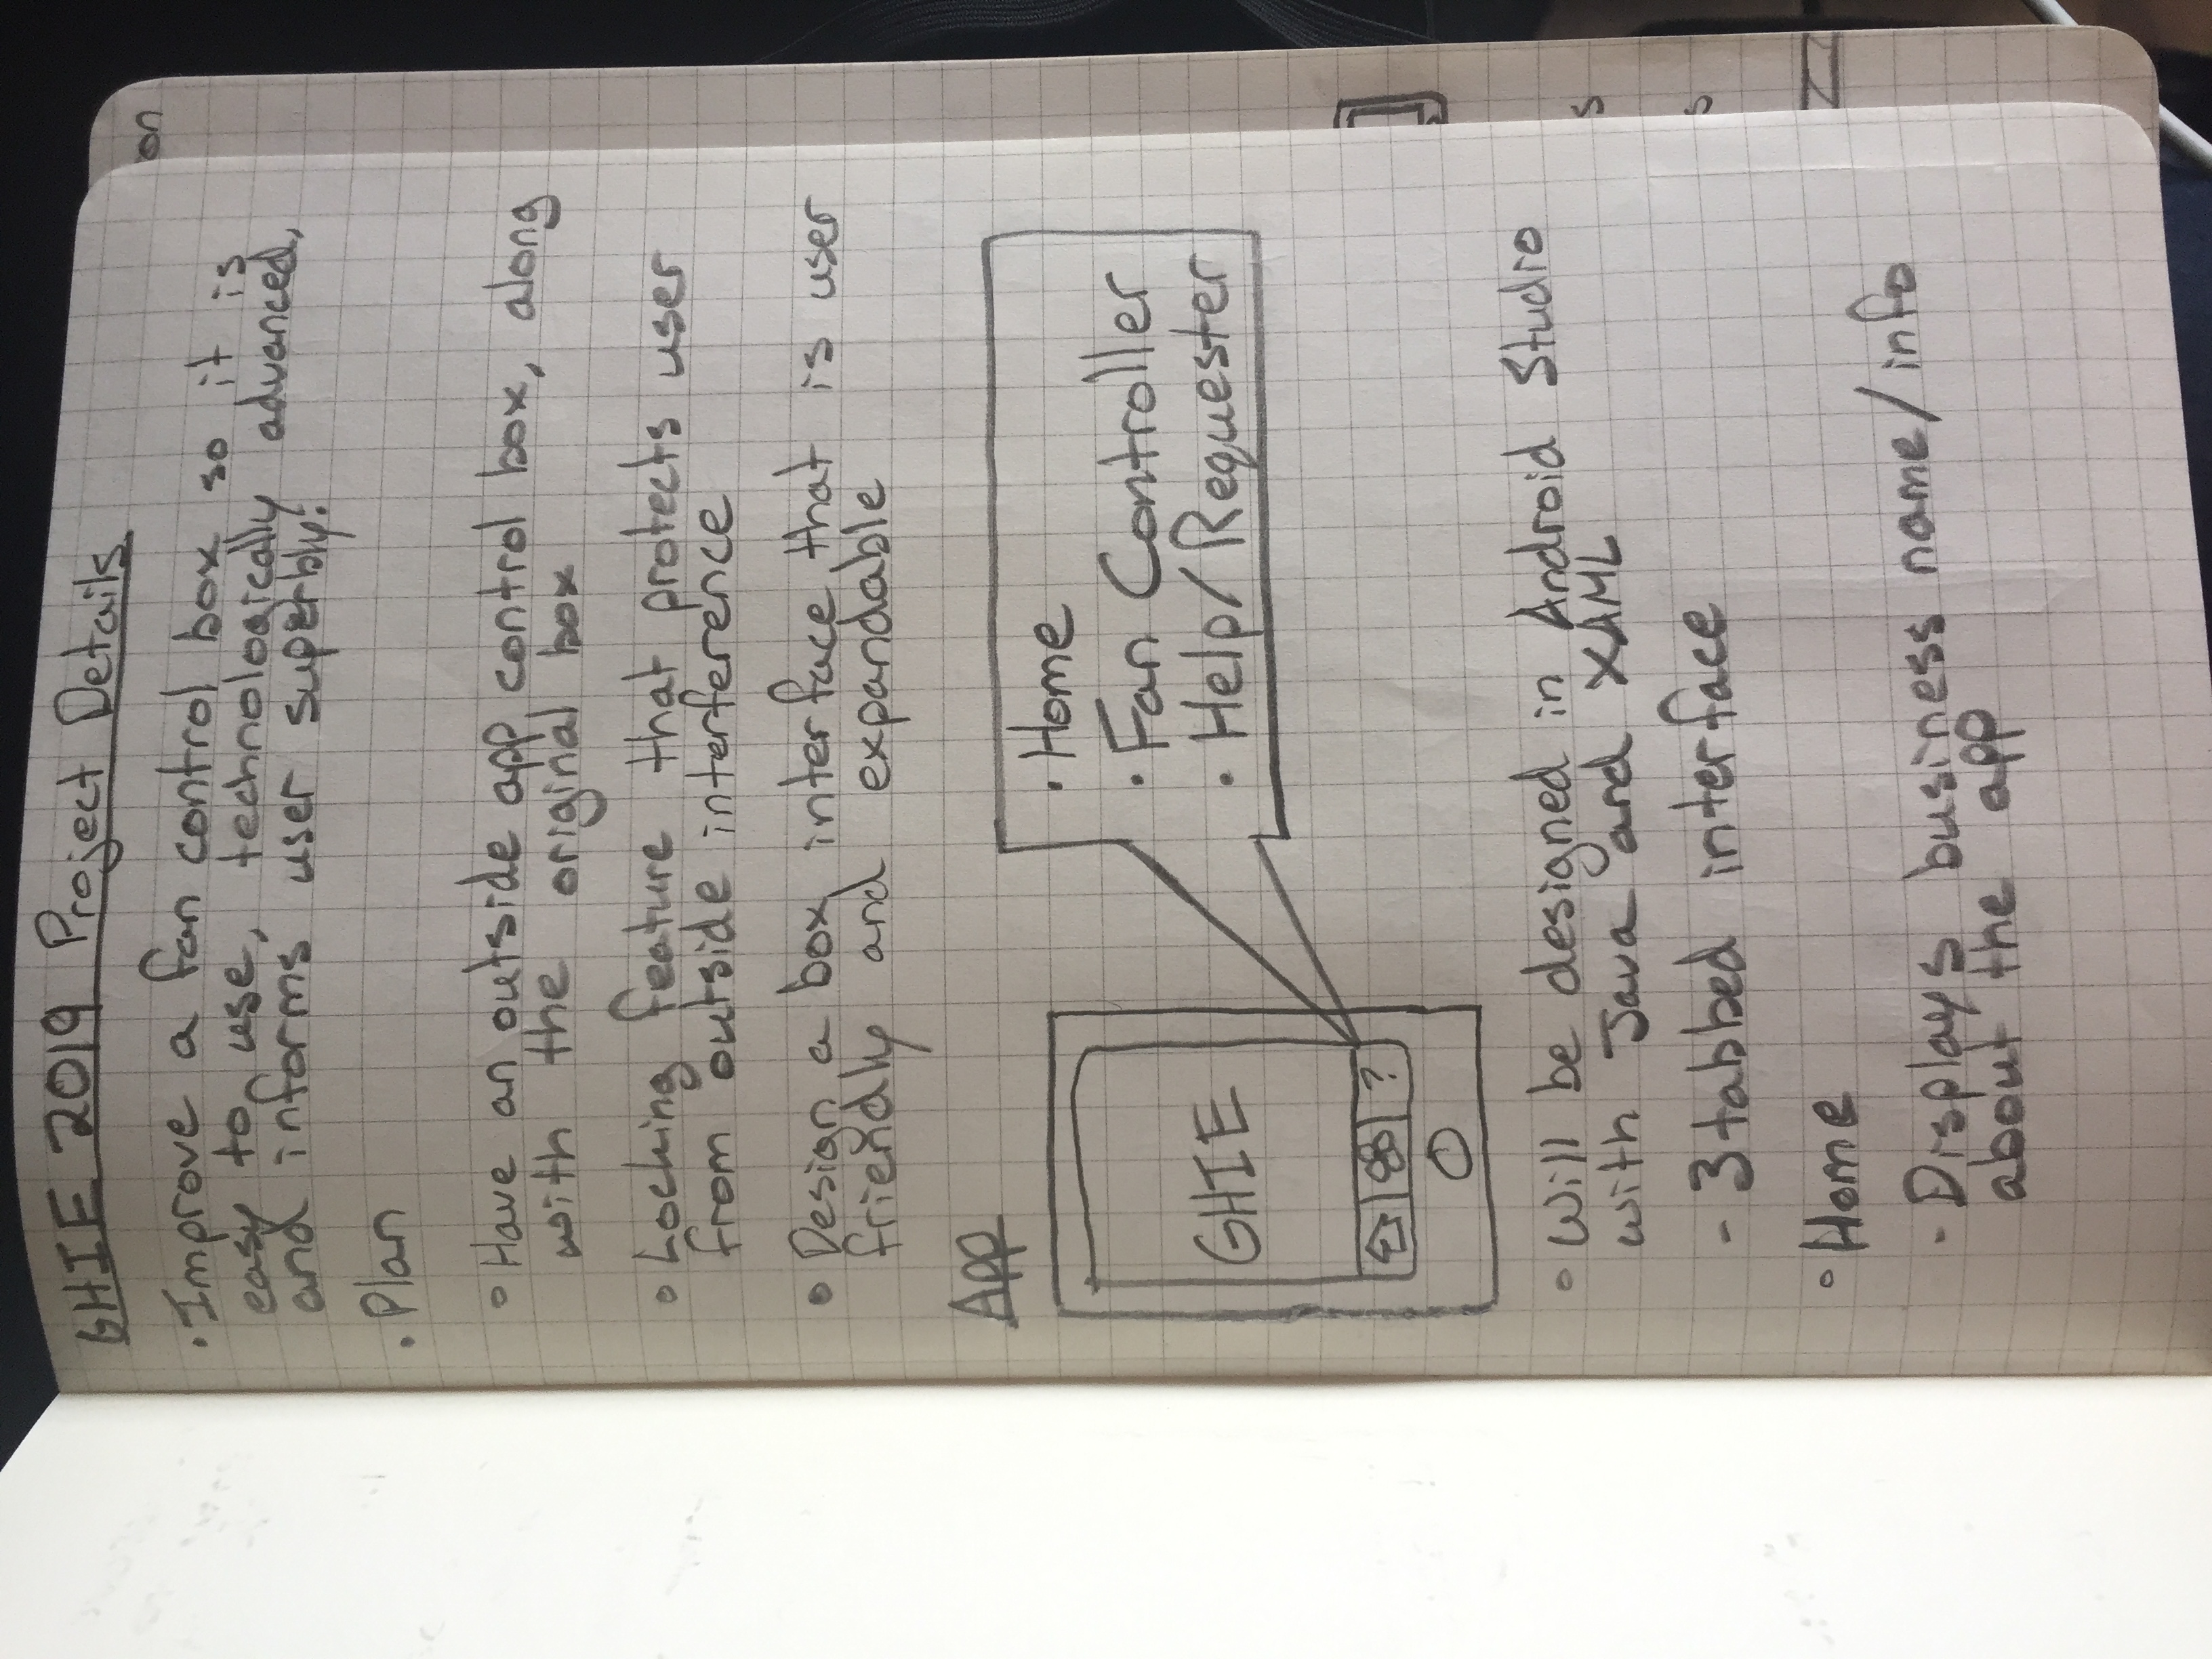 GHIE 2019 Project Details
• Improve a fan control box so it is
easy to use, technologically advanced,
and informs user superbly!
• Plan
◦ Have an outside app control box, along
with the original box
◦ Locking feature that protects user
from outside interference
◦ Design a box interface that is user
friendly and expandable
App
• Home
• Fan Controller
• Help/Requester
GHIE
?
◦ Will be designed in Android Studio
with Java and XAML
- 3 tabbed interface
◦ Home
- Displays business name/info
about the app
on
s
s